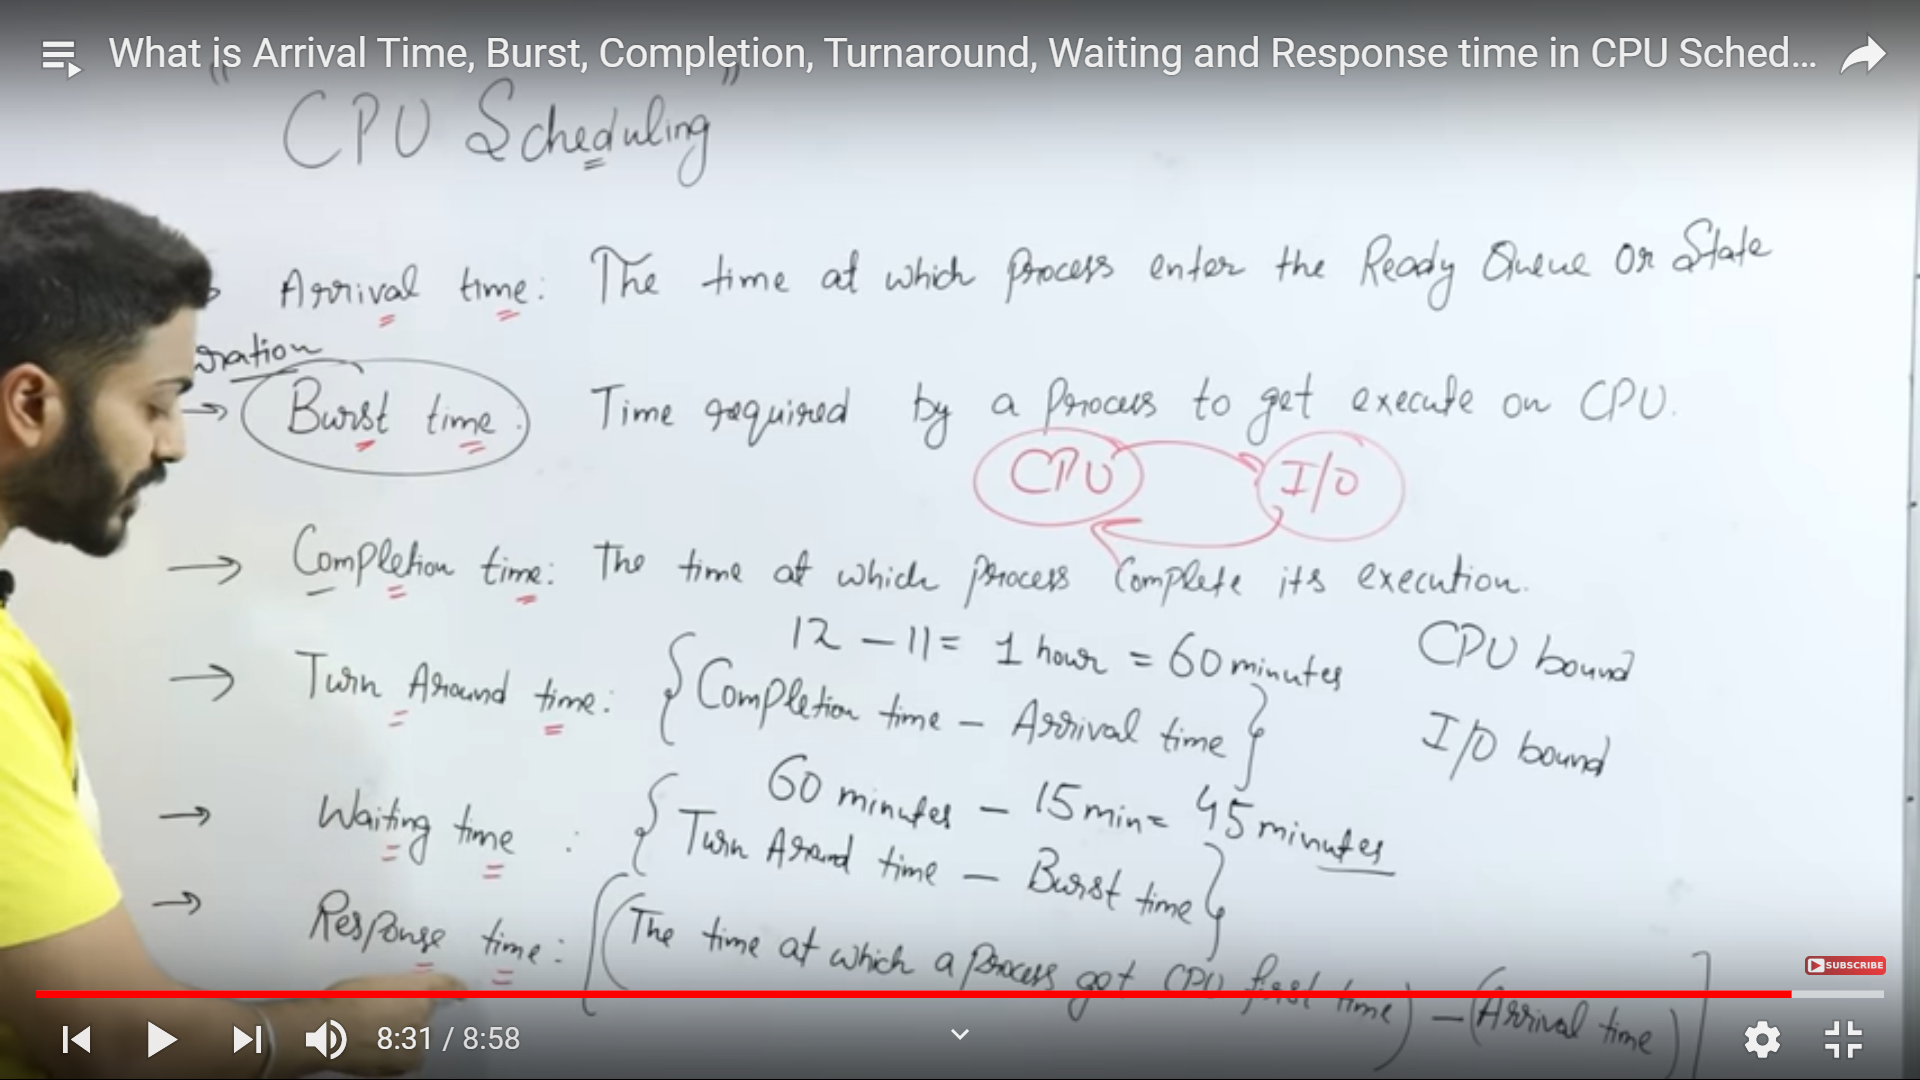 What is Arrival Time, Burst, Completion, Turnaround, Waiting and Response time in CPU Sched...
" CPU Scheduling "
Arrival time: The time at which process enter the Ready Queue or State
uration
→ Burst time: Time required by a process to get execute on CPU.
CPU I/O
→ Completion time: The time at which process Complete its execution.
12 – 11 = 1 hour = 60 minutes
CPU bound
→ Turn Around time: {Completion time – Arrival time}
I/O bound
60 minutes – 15 min = 45 minutes
→ Waiting time : {Turn Around time – Burst time}
→ Response time: [(The time at which a process got CPU first time) – (Arrival time)]
SUBSCRIBE
8:31 / 8:58